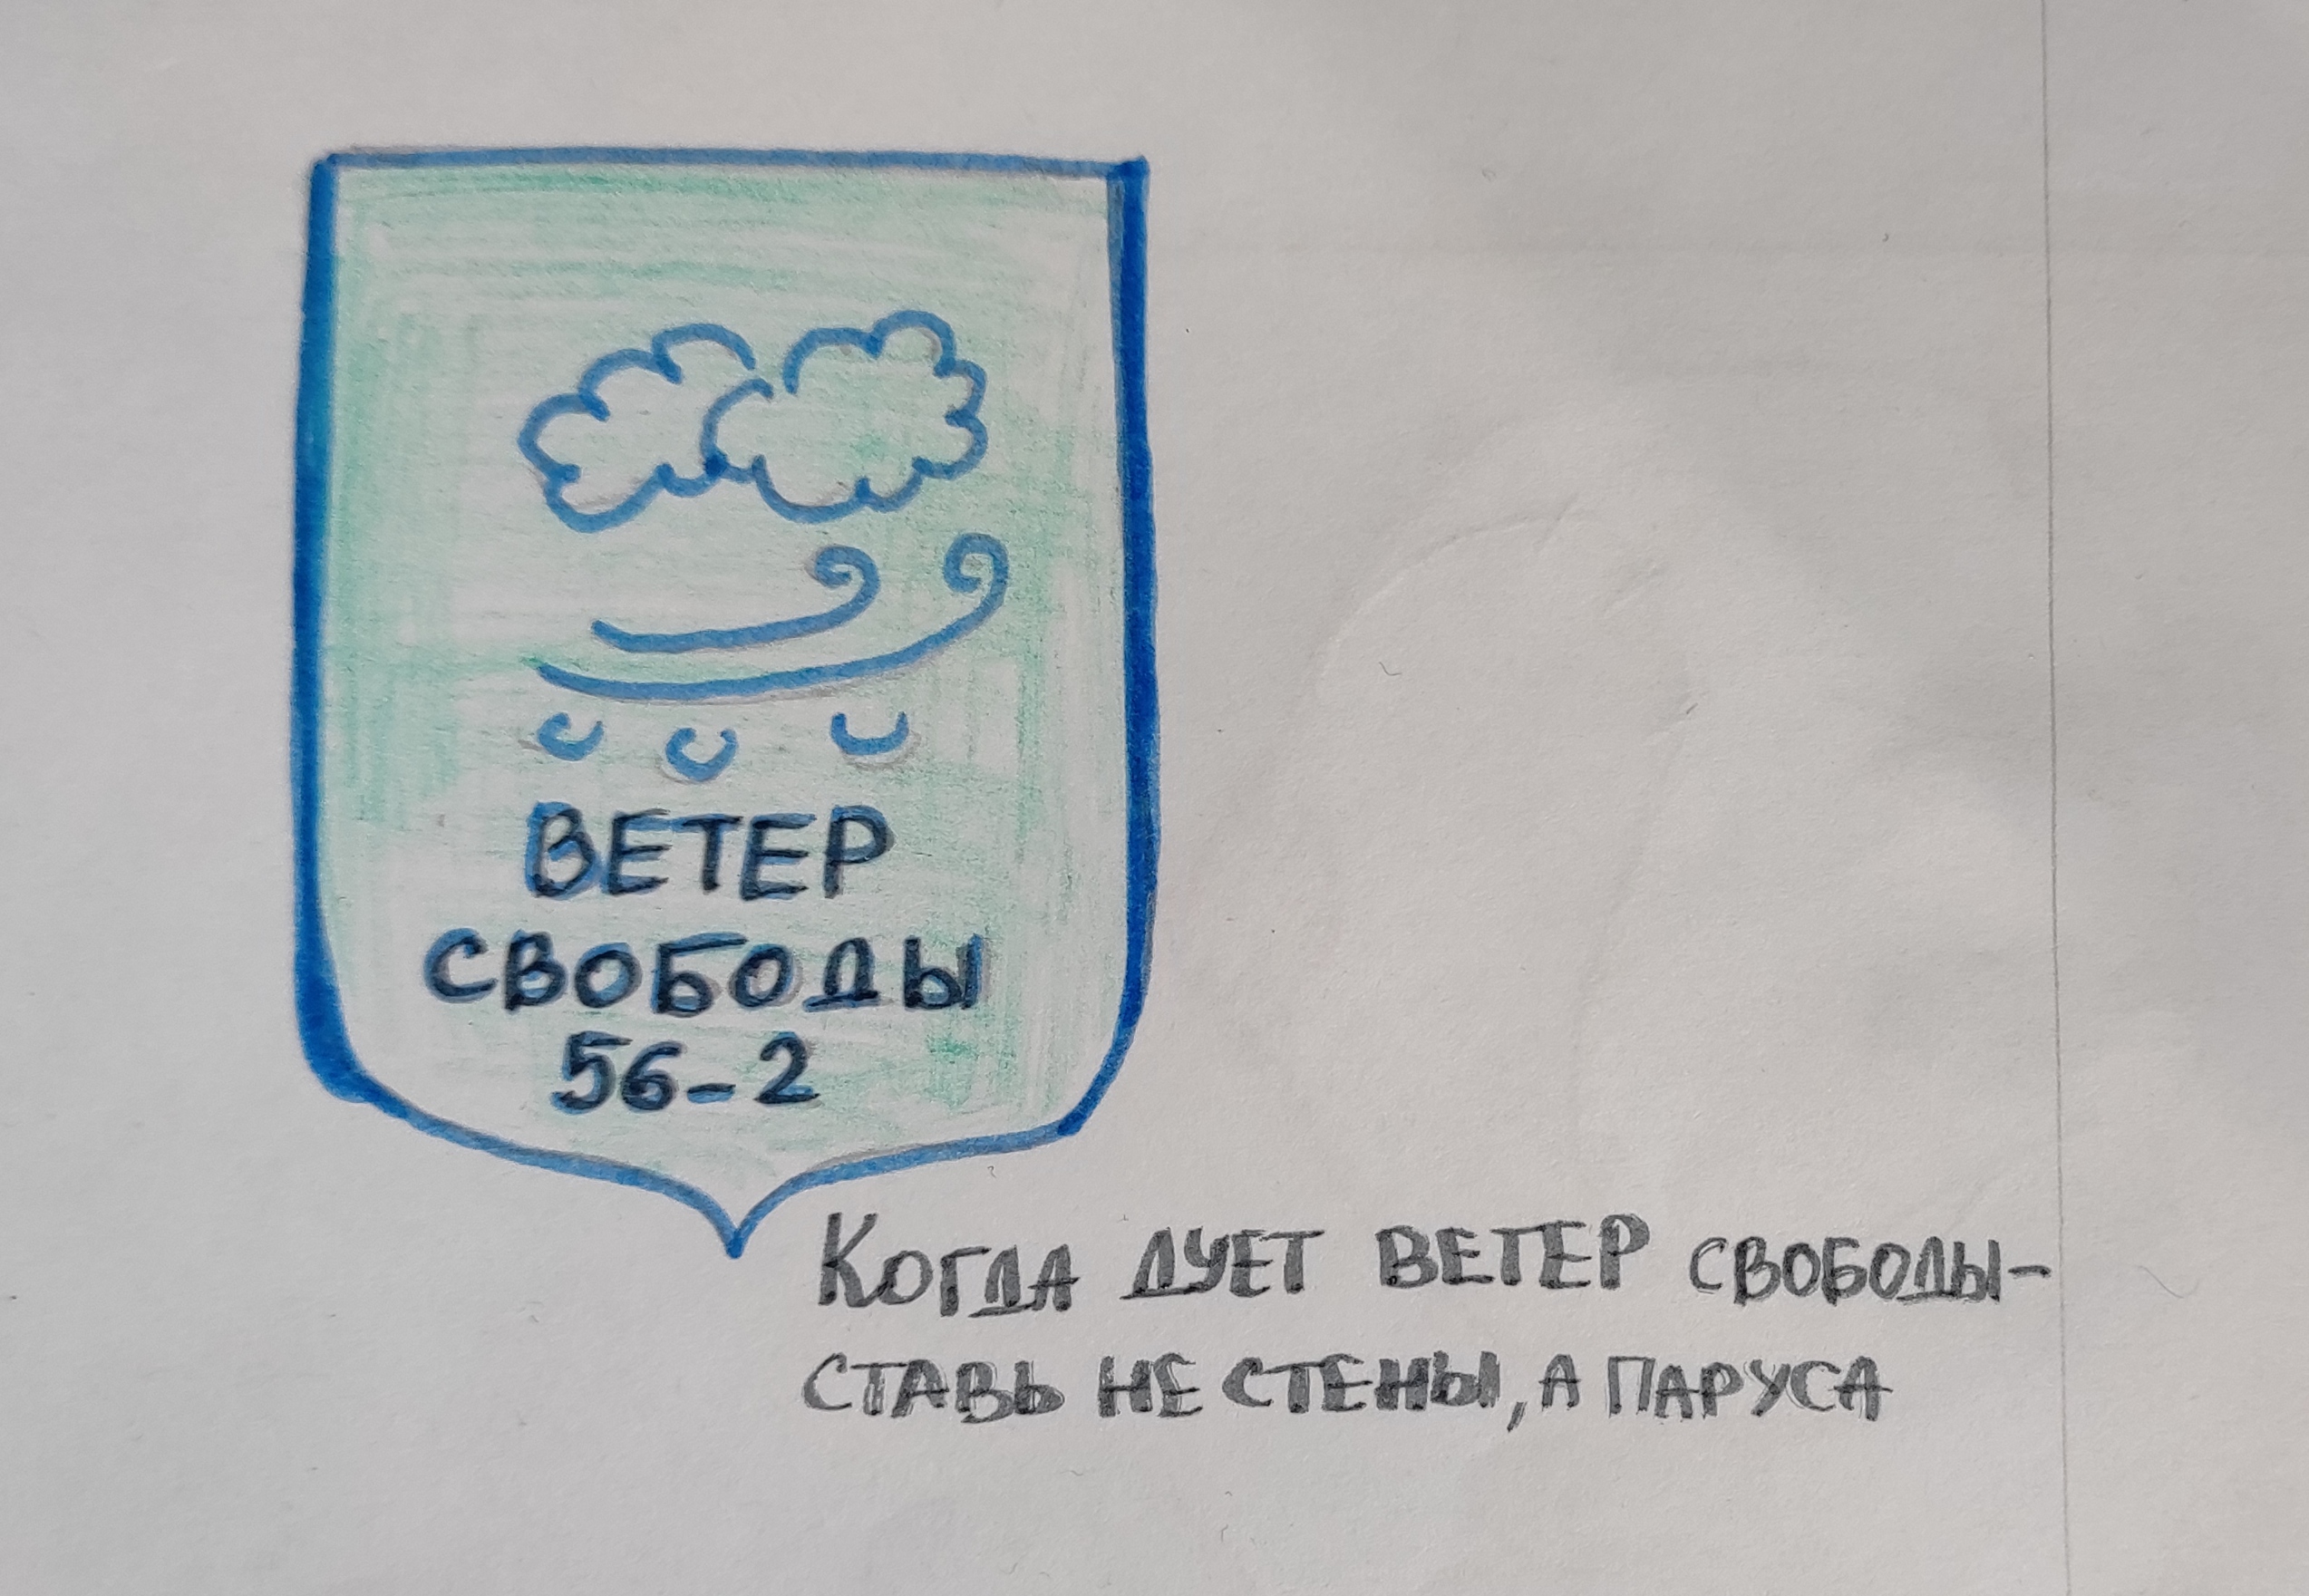 ВЕТЕР
СВОБОДЫ
56-2
Когда дует ВЕТЕР СВОБОДЫ-
СТАВЬ НЕ СТЕНЫ, А ПАРУСА